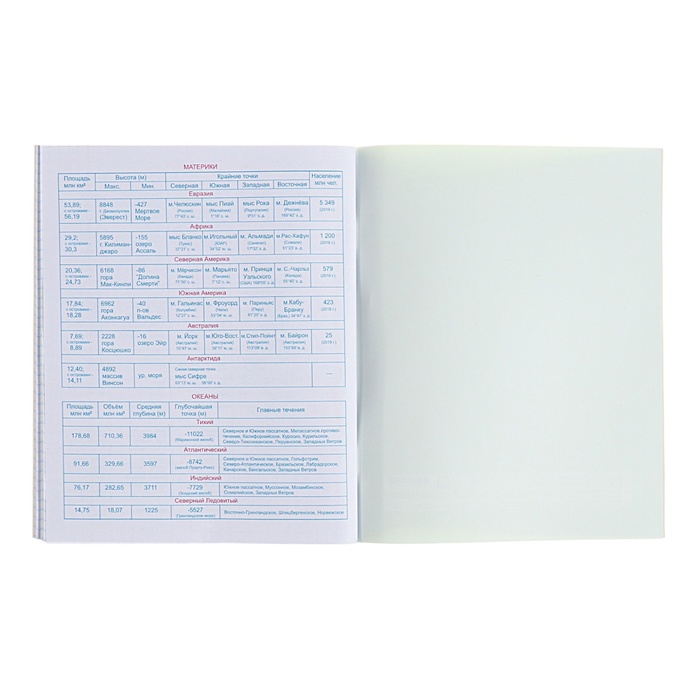 МАТЕРИКИ
Площадь млн км² Высота (м) Крайние точки Население млн чел.
Макс. Мин. Северная Южная Западная Восточная
Евразия
53,89; 8848 -427 м.Челюскин мыс Пиай мыс Рока м. Дежнёва 5 349
с островами - г. Джомолунгма Мертвое (Россия) (Малайзия) (Португалия) (Россия) (2019 г.)
56,19 (Эверест) Море
Африка
29,2; 5895 -155 мыс Бланко м.Игольный м. Альмади м.Рас-Хафун 1 200
с островами - г. Килиман- озеро (Тунис) (ЮАР) (Сенегал) (Сомали) (2019 г.)
30,3 джаро Ассаль
Северная Америка
20,36; 6168 -86 м. Мёрчисон м. Марьято м. Принца м. С.-Чарльз 579
с островами - гора "Долина (Канада) (Панама) Уэльского (Канада) (2019 г.)
24,73 Мак-Кинли Смерти"
Южная Америка
17,84; 6962 -40 м. Гальинас м. Фроуорд м. Париньяс м.Кабу- 423
с островами - гора п-ов (Колумбия) (Чили) (Перу) Бранку (2019 г.)
18,28 Аконкагуа Вальдес
Австралия
7,69; 2228 -16 м. Йорк м.Юго-Вост. м.Стип-Пойнт м. Байрон 25
с островами - гора озеро Эйр (Австралия) (Австралия) (Австралия) (Австралия) (2019 г.)
8,89 Косцюшко
Антарктида
12,40; 4892 ур. моря Самая северная точка —
с островами - массив мыс Сифре
14,11 Винсон
ОКЕАНЫ
Площадь Объём Средняя Глубочайшая Главные течения
млн км² млн км³ глубина (м) точка (м)
Тихий
178,68 710,36 3984 -11022 Северное и Южное пассатное, Межпассатное противо-
(Марианский желоб) течение, Калифорнийское, Куросио, Курильское,
Северо-Тихоокеанское, Перуанское, Западных Ветров
Атлантический
91,66 329,66 3597 -8742 Северное и Южное пассатное, Гольфстрим,
(желоб Пуэрто-Рико) Северо-Атлантическое, Бразильское, Лабрадорское,
Канарское, Бенгальское, Западных Ветров
Индийский
76,17 282,65 3711 -7729 Южное пассатное, Муссонное, Мозамбикское,
(Зондский желоб) Сомалийское, Западных Ветров
Северный Ледовитый
14,75 18,07 1225 -5527 Восточно-Гренландское, Шпицбергенское, Норвежское
(Гренландское море)